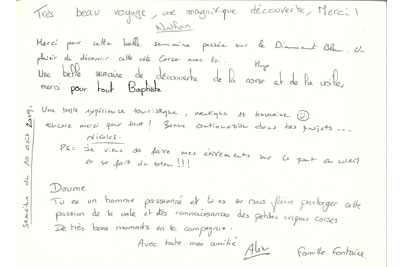 Très beau voyage, une magnifique découverte, Merci !
Nathan
Merci pour cette belle semaine passée sur le Diamant Bleu. Un
plaisir de découvrir cette côte Corse avec toi.
Hugo
Une belle semaine de découverte de la corse et de la voile,
merci pour tout Baptiste
Une belle expérience touristique, nautique et humaine
encore merci pour tout ! Bonne continuation dans tes projets...
Nicolas.
Ps: Je viens de faire mes étirements sur le pont au soleil
et se fait du bien !!!
Semaine du 10 août 2009.
Doume
Tu es un homme passionné et tu as su nous faire partager cette
passion de la voile et des connaissances des petites criques corses
De très bons moments en ta compagnie.
Avec toute mon amitié Alex
Famille Fontaine.